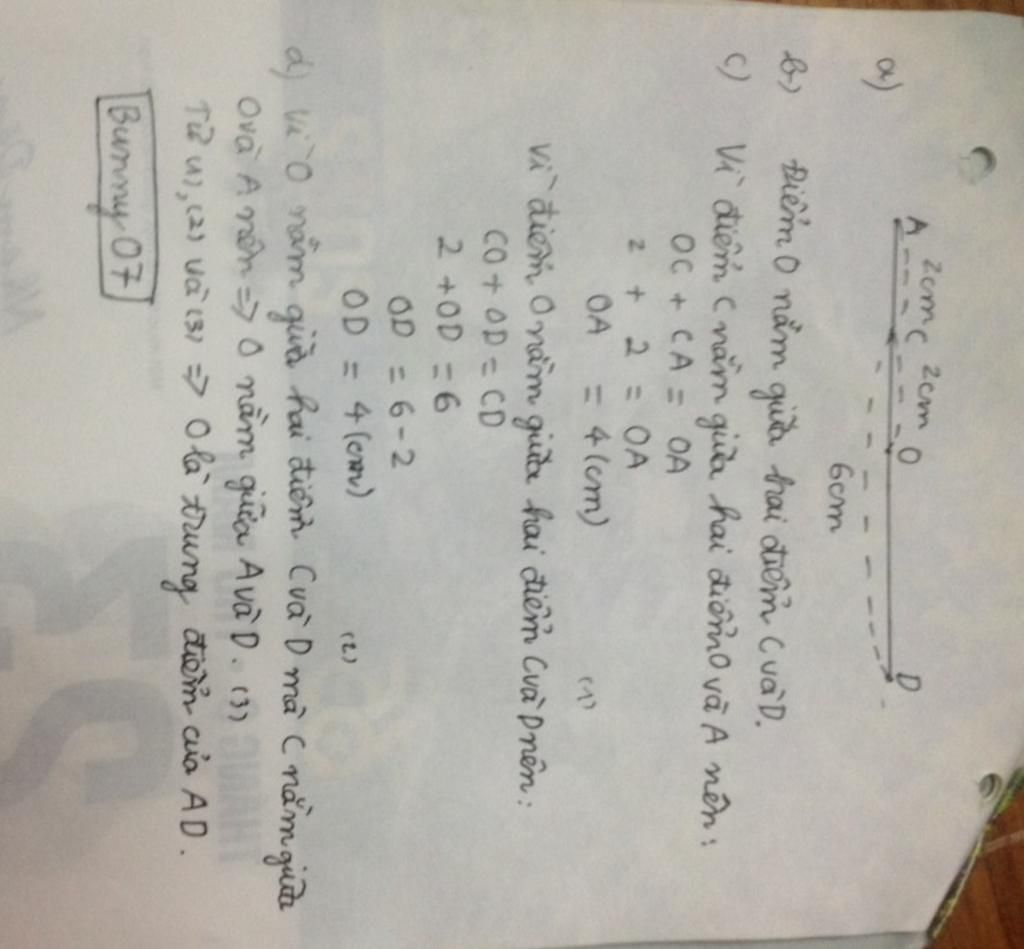 a)
A 2cm C 2cm O D
6cm
b) Điểm O nằm giữa hai điểm C và D.
c) Vì điểm C nằm giữa hai điểm O và A nên:
OC + CA = OA
2 + 2 = OA
OA = 4 (cm) (1)
Vì điểm O nằm giữa hai điểm C và D nên:
CO + OD = CD
2 + OD = 6
OD = 6 - 2
OD = 4 (cm) (2)
d) Vì O nằm giữa hai điểm C và D mà C nằm giữa
O và A nên => O nằm giữa A và D. (3)
Từ (1), (2) và (3) => O là trung điểm của AD.
Bunny07